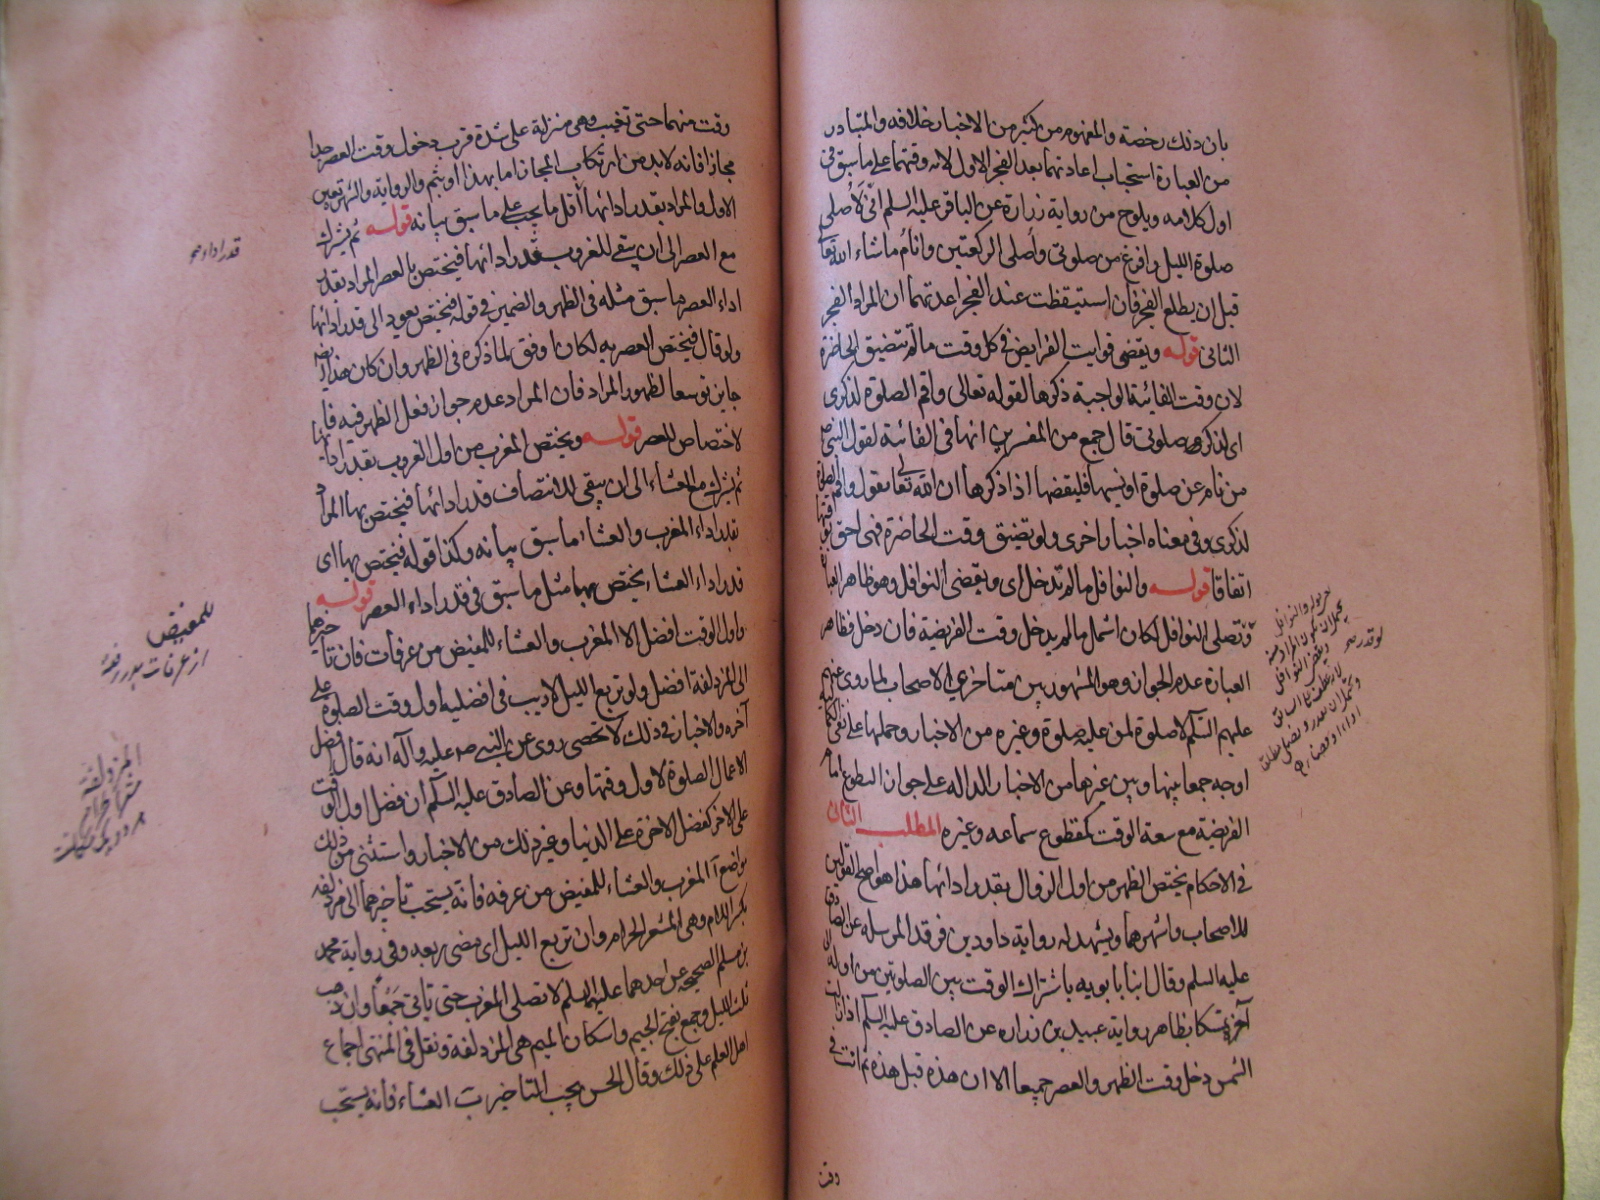 بان ذلك رخصة والمفهوم من كثير من الاخبار خلافه والمتبادر
من العبارة استحباب اعادتهما بعد الفجر الاول لانه وقتهما على ما سبق في
اول كلامه ويلوح من رواية زرارة عن الباقر عليه السلم انى لاصلى
صلوة الليل وافرغ من صلوتى واصلى الركعتين وانام ما شاء الله تعا
قبل ان يطلع الفجر فان استيقظت عند الفجر اعدتهما ان المراد الفجر
الثانى قوله ويقضى فوايت الفرايض في كل وقت ما لم تتضيق الحاضرة
لان وقت الفائتة الواجبة ذكرها لقوله تعالى واقم الصلوة لذكرى
اى لذكر صلوتى قال جمع من المفسرين انها في الفائتة لقول النبى ص
من نام عن صلوة او نسيها فليقضها اذا ذكرها ان الله تعا يقول واقم الصلوة
لذكرى وفى معناه اخبار اخرى ولو تضيق وقت الحاضرة فهى احق بوقتها
اتفاقا قوله والنوافل ما لم تدخل اى ويقضى النوافل وهو ظاهر العبارة
ولو قال وتصلى النوافل لكان اشمل ما لم يدخل وقت الفريضة فان دخل فظاهر
العبارة عدم الجواز وهو المشهور بين متاخرى الاصحاب لما روى عنهم
عليهم السلم لا صلوة لمن عليه صلوة وغيره من الاخبار وحملها على نفى الكمال
اوجه جمعا بينها وبين غيرها من الاخبار الدالة على جواز التطوع امام
الفريضة مع سعة الوقت كمقطوع سماعه وغيره المطلب الثانى
في الاحكام يختص الظهر من اول الزوال بقدر ادائها هذا هو اصح القولين
للاصحاب واشهرهما ويشهد له رواية داود بن فرقد المرسله عن الصادق
عليه السلم وقال ابنا بابويه باشتراك الوقت بين الصلوتين من اوله الى
آخره تمسكا بظاهر رواية عبيد بن زراره عن الصادق عليه السلم اذا زالت
الشمس دخل وقت الظهر والعصر جميعا الا ان هذه قبل هذه ثم انت في
وقت
وقت منهما حتى تغيب وهى منزلة على شدة قرب دخول وقت العصر جدا
مجازا فانه لابد من ارتكاب المجاز اما بهذا او بثم والرواية والشهرة تعين
الاول والمراد بقدر ادائها اقل ما يجب على ما سبق بيانه قوله ثم يشترك
مع العصر الى ان يبقى للغروب قدر ادائها فيختص بالعصر المراد بقدر
اداء العصر ما سبق مثله في الظهر والضمير في قوله فيختص يعود الى قدر ادائها
ولو قال فيختص العصر به لكان اوفق لما ذكره في الظهر وان كان هذا ايضا
جايز توسعا لظهور المراد فان المراد عدم جواز فعل الظهر فيه
لاختصاص للعصر قوله ويختص المغرب من اول الغروب بقدر ادائها
ثم يشترك مع العشاء الى ان يبقى للانتصاف قدر ادائها فيختص بها المراد
بقدر اداء المغرب والعشاء ما سبق بيانه وكذا قوله فيختص بها اى
قدر اداء العشاء يختص بها مثل ما سبق في قدر اداء العصر قوله
واول الوقت افضل الا المغرب والعشاء للمفيض من عرفات فان تاخيرهما
الى المزدلفة افضل ولو تربع الليل لا ريب في افضلية اول وقت الصلوة على
آخره والاخبار في ذلك لا تحصى روى عن النبى ص عليه وآله انه قال افضل
الاعمال الصلوة لاول وقتها وعن الصادق عليه السلم ان فضل اول الوقت
على الاخر كفضل الاخرة على الدنيا وغير ذلك من الاخبار واستثنى من ذلك
مواضع آ المغرب والعشاء للمفيض من عرفه فانه يستحب تاخيرهما الى مزدلفه
بكسر اللام وهى المشعر الحرام وان تربع الليل اى مضى ربعه وفى رواية محمد
بن مسلم الصحيحه عن احدهما عليهما السلم لا تصلى المغرب حتى ياتى جمعا وان ذهب
ثلث الليل وجمع بفتح الجيم واسكان الميم هى المزدلفة ونقل في المنتهى اجماع
اهل العلم على ذلك وقال الحسن يجب التاخير ب العشاء فانه يستحب
قدر اداء
للمفيض
از عرفات
المزدلفة